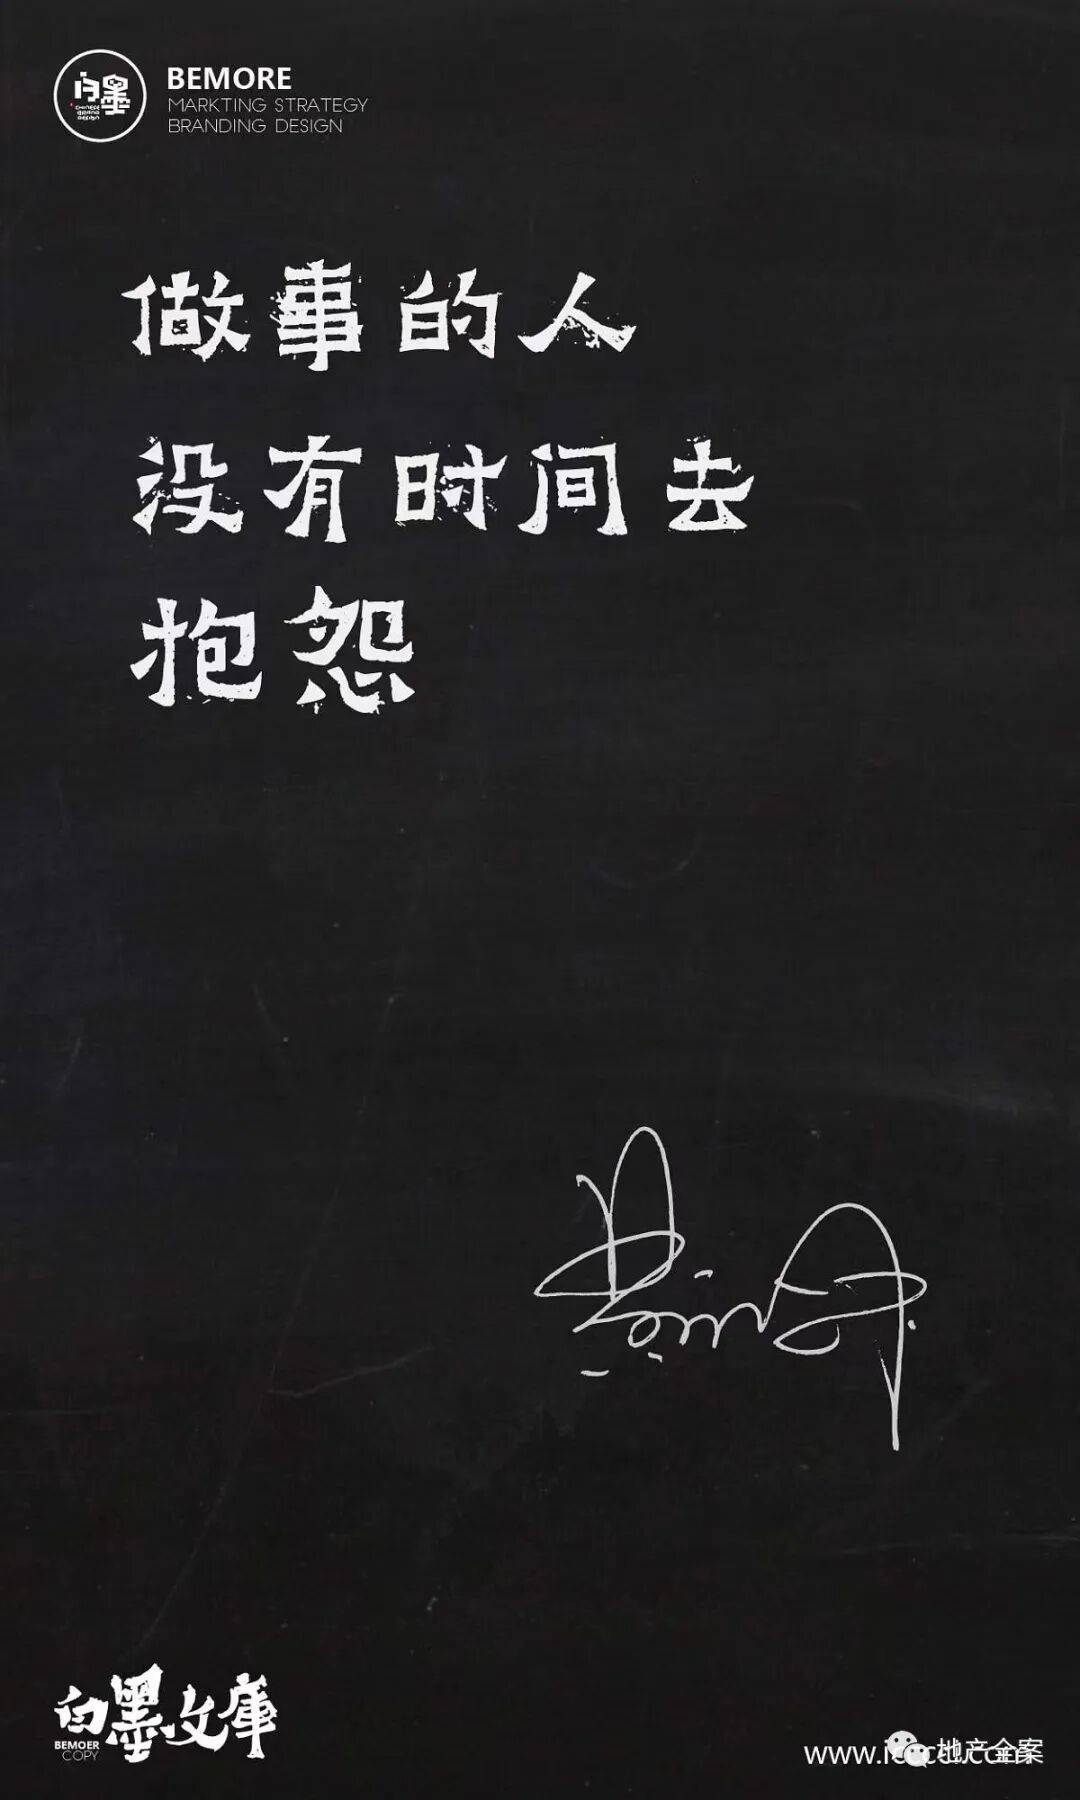 白墨
CHINESE
BRAND
DESIGN
BEMORE
MARKTING STRATEGY
BRANDING DESIGN
做事的人
没有时间去
抱怨
白墨文庫
BEMOER
COPY
地产全案